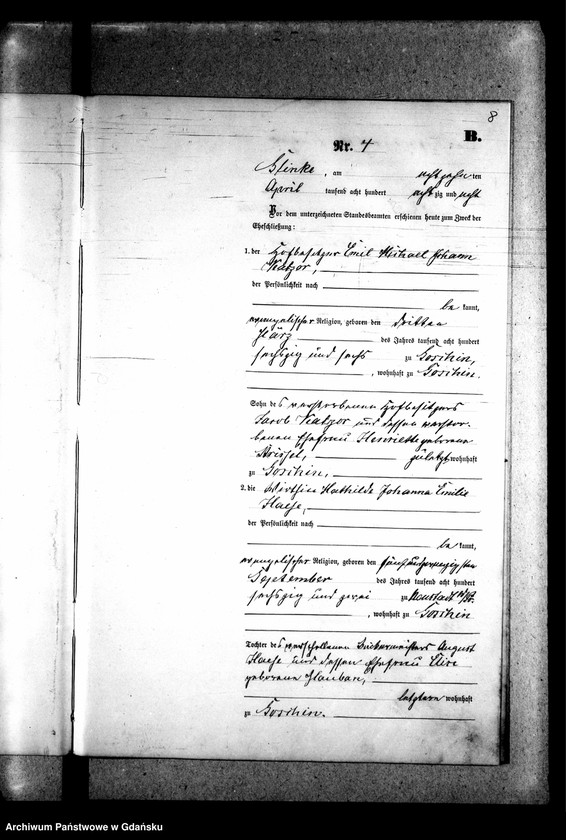 8
B.
Nr. 4
Glinke, am achtzehnten
April tausend acht hundert achtzig und acht
Vor dem unterzeichneten Standesbeamten erschienen heute zum Zweck der
Eheschließung:
1. der Hofbesitzer Emil Michael Johann
der Persönlichkeit nach
bekannt,
evangelischer Religion, geboren den dritten
März des Jahres tausend acht hundert
sechszig und sechs zu Goschin,
, wohnhaft zu Goschin.
Sohn des verstorbenen Hofbesitzers
Jacob und dessen verstor-
benen Ehefrau Henriette geborene
zuletzt wohnhaft
zu Goschin,
2. die Wirthin Mathilde Johanna Emilie
Haese,
der Persönlichkeit nach
bekannt,
evangelischer Religion, geboren den fünfundzwanzigsten
September des Jahres tausend acht hundert
sechszig und zwei zu Neustadt W/Pr.
, wohnhaft zu Goschin
Tochter des verschollenen August
Haese und dessen Ehefrau
geborene
letztere wohnhaft
zu Goschin.
Archiwum Państwowe w Gdańsku